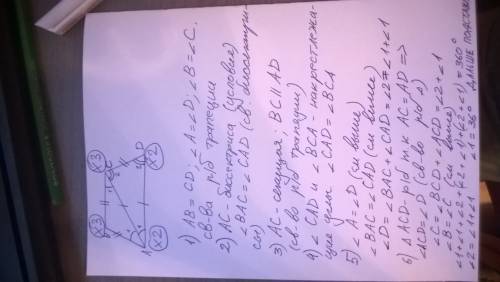 ×3
×3
×2
×2
A
D
1) AB = CD; ∠A = ∠D; ∠B = ∠C.
св-ва р/б трапеции
2) AC - биссектриса (условие)
∠BAC = ∠CAD (св. биссектри-
сы)
3) AC - секущая; BC || AD
(св-во р/б трапеции)
4) ∠CAD и ∠BCA - накрестлежа-
щие углы ∠CAD = ∠BCA
5) ∠A = ∠D (см выше)
∠BAC = ∠CAD (см выше)
∠D = ∠BAC + ∠CAD = ∠2 = ∠1 + ∠1
6) △ACD - р/б т.к AC = AD =>
∠ACD = ∠D (св-во р/б △)
∠C = ∠BCD + ∠ACD = ∠2 + ∠1
∠B = ∠C (см выше)
∠1+∠1+∠2+(∠2+∠1)+(∠2+∠1) = 360°
∠2 = ∠1+∠1 ∠1 = 36° ДАЛЬШЕ